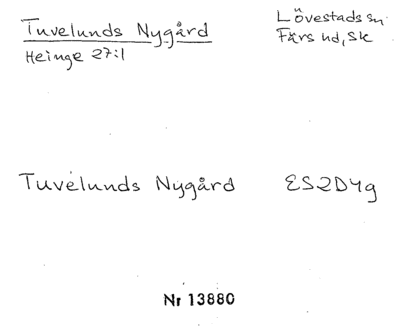 Tuvelunds Nygård
Heinge 27:1
Lövestads sn.
Färs hd, Sk
Tuvelunds Nygård ES2D4g
Nr 13880